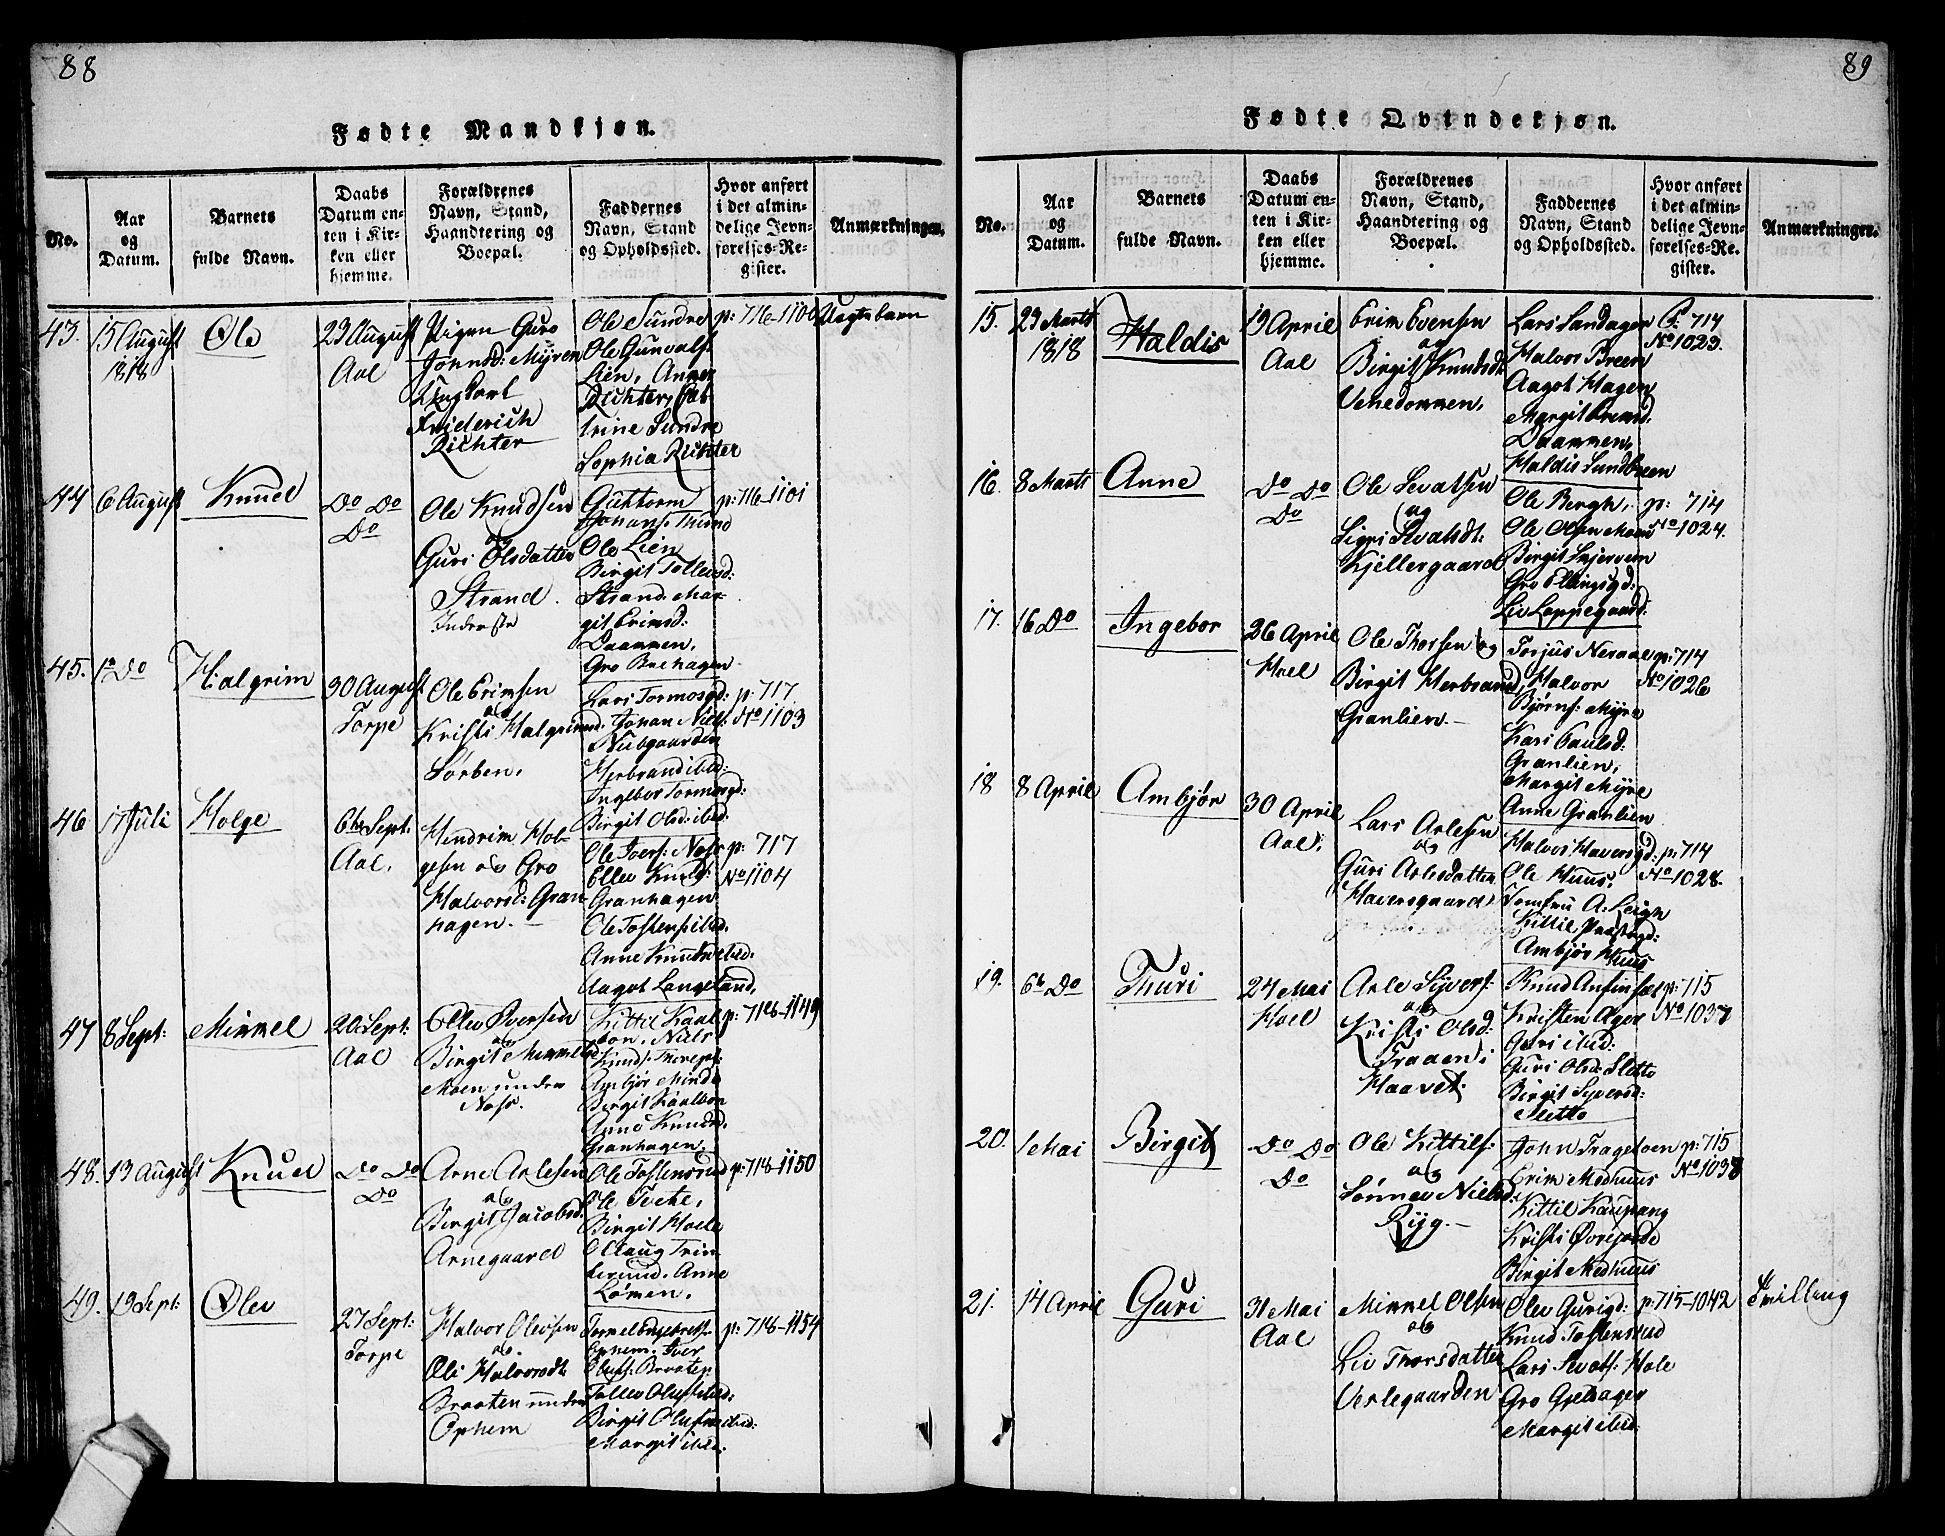 88
Fødte Mandkjøn.
No.
Aar
og
Datum.
Barnets
fulde Navn.
Daabs
Datum en-
ten i Kir-
ken eller
hjemme.
Forældrenes
Navn, Stand,
Haandtering og
Boepæl.
Faddernes
Navn, Stand
og Opholdssted.
Hvor anført
i det almin-
delige Jevn-
førelses-Re-
gister.
Anmærkninger.
43.
15 August
1818
Ole
23 August
Aal
Pigen Guro
Johnsd: Myren
Ungkarl
Friederich
Richter
Ole Sundre
Ole Gunvalfs
Lien, Anne
Richter, Cat-
trine Sundre
Sophia Richter
p: 716-1100
Uægte barn
44
6 August
Knud
Do Do
Do
Ole Knudsen
og
Guri Olsdatter
Strand.
Guttorm
Johans:
Ole Lien
Birgit Tollevsd:
Strand. Mar-
git Erimsd:
Daammen,
Gro Bæhagen
p: 716-1101
45.
1ste Do
Halgrim
30 August
Torpe
Ole Erimsen
og
Kristi Halgrimsd.
Sørben,
Lars Tormosgd:
Johan Niels:
Nubgaarden
Herbrand ibid:
Ingebor Tormosgd:
Birgit Olsd: ibid:
p: 717.
No 1103
46
17 Juli
Holge
6te Sept:
Aal,
Hendrim Hol-
gesen og Gro
Halvorsd: Gran-
hagen.
Ole Ivers: Noss
Ellev Knuds:
Granhagen
Ole Tostens: ibid.
Anne Knudsd. ibid.
Aagot Langeland,
p: 717
No 1104
47
8 Sept:
Mimmel
20 Sept:
Aal
Ellev Øversen
og
Birgit Mimmelsd
Moen under
Noss.
Kittil Kaal-
bon, Niels
Knuds. Thorepl:
Ambjør Minde
Birgit Kaalbon
Anne Knudsd.
Granhagen.
p: 718-1149
48.
13 August
Knud
Do Do
Do
Arne Arlesen
og
Birgit Jacobsd.
Arnegaard
Ole Tostensrud
Ole Tvete,
Birgit Hoele
Ollaug Trin-
terud. Anne
Lømen.
p: 718-1150
49.
13 Sept:
Olev
27 Sept:
Torpe
Halvor Olevsen
og
Oli Halvorsdt.
Braaten under
Ophem
Ophem. Iver
Olevs: Braaten
Tollev Olevs: ibid:
Birgit Olevsd. ibid:
Margit ibid.
p: 718-1154
89
Fødte Qvindekjøn.
No.
Aar
og
Datum.
Barnets
fulde Navn.
Daabs
Datum en-
ten i Kir-
ken eller
hjemme.
Forældrenes
Navn, Stand,
Haandtering og
Boepæl.
Faddernes
Navn, Stand
og Opholdssted.
Hvor anført
i det almin-
delige Jevn-
førelses-Re-
gister.
Anmærkninger.
15.
23 Marts
1818
Haldis
19 April
Aal
Erim Evensen
og
Birgit Knudsdt.
Vehedommen,
Lars Sandager
Halvor Breen
Aagot Hagen
Margit Erimsd.
Daammen,
Haldis Sundbreen
P: 714
No 1023.
16.
8 Marts
Anne
Do Do
Do
Ole Sevatsen
og
Sigri Sevatsdt:
Kjellergaard
Ole Bergh,
Ole Olsen Moen
Birgit Skjerveim
Gro Ellingsgd:
Liv Loppegaard:
p: 714
No 1024.
17.
16 Do
Ingebor
26 April
Hoel
Ole Thorsen og
Birgit Herbrandsd.
Granlien.
Torjus Neraal
Halvor
Bjørns: Myre
Kari Paulsd:
Granlien,
Margit Myre
Anne Granlien
p: 714
No 1026
18
8 April
Ambjør
30 April
Aal.
Lars Arlesen
og
Guri Arlesdatter
Haversgaard
Halvor Haversgd:
Ole Huus,
Jomfru A: Leigh
Kittil
Ambjør Huus
p: 714
No 1028.
19.
6te Do
Thuri
24 Mai
Hoel
Arle Syvers:
og
Kristi Olsd:
Traaen i
Haavet:
Knud Anfinsæt
Kristen Ager
Guri ibid:
Guri Olsd: Sletto
Birgit Syversd:
Sletto
p: 715
No 1037
20.
1 Mai
Birgit
Do Do
Do
Ole Kittils:
og
Sønnev Nielsd.
Ryg.
John Tragetoen
Erim Medhuus
Kittil Kaupang
Kristi Øvrejorde
Birgit Medhuus
p: 715
No 1038
21.
14 April
Guri
31 Mai
Aal
Mimmel Olsen
og
Liv Thorsdatter
Verlegaarden
Olev Gurigd:
Knud Tostensrud
Lars Sevats: Hole
Gro Gjeldager
Margit ibid:
p: 715-1042
Tvilling